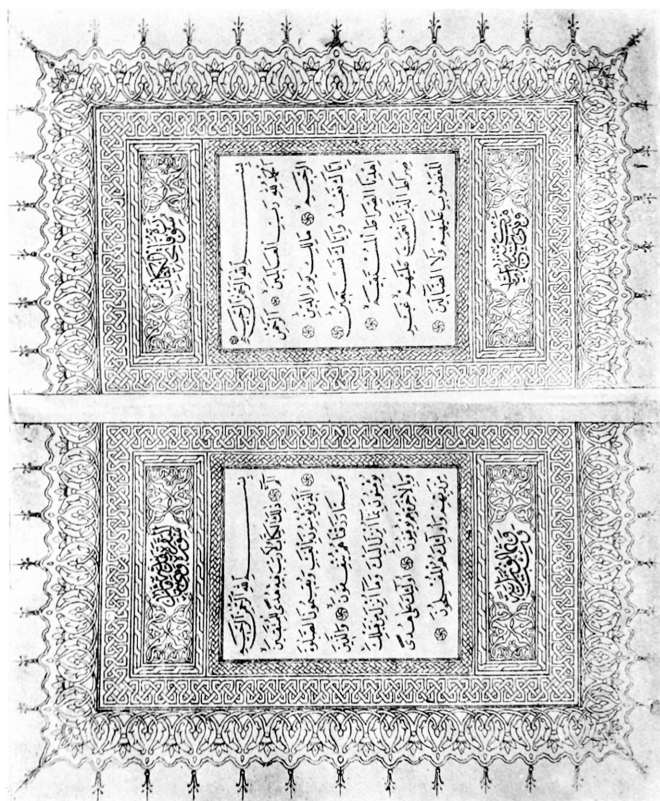 سورة فاتحة الكتاب
بسم الله الرحمن الرحيم
الحمد لله رب العالمين الرحمن
الرحيم مالك يوم الدين
اياك نعبد واياك نستعين
اهدنا الصراط المستقيم
صراط الذين انعمت عليهم غير
المغضوب عليهم ولا الضالين
بسم الله الرحمن الرحيم
الم ذلك الكتاب لا ريب فيه هدى للمتقين
الذين يؤمنون بالغيب ويقيمون الصلوة
ومما رزقناهم ينفقون والذين
يؤمنون بما انزل اليك وما انزل من قبلك
وبالاخرة هم يوقنون اولئك على هدى
من ربهم واولئك هم المفلحون